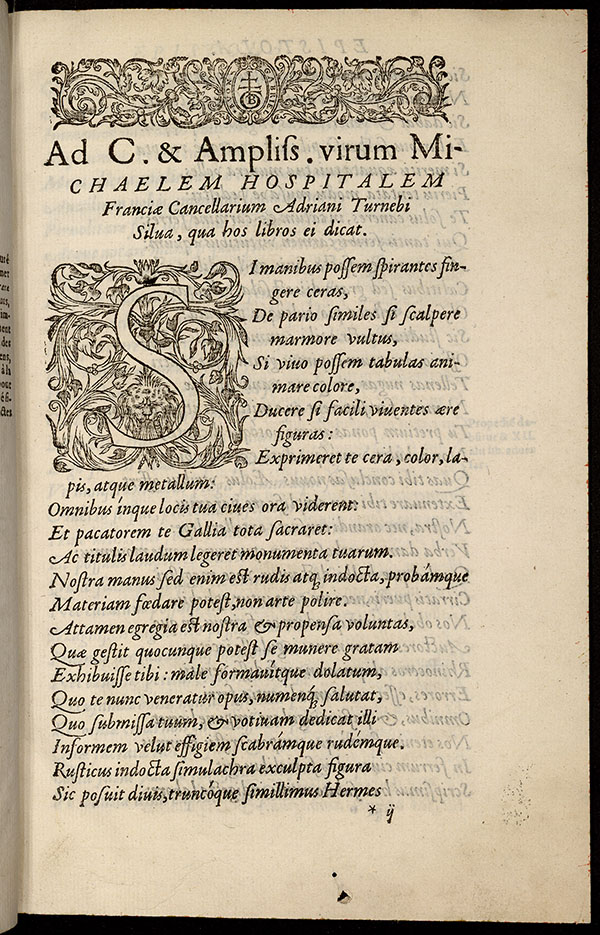 Ad C. & Ampliſs. virum Mi-
CHAELEM HOSPITALEM
Franciæ Cancellarium Adriani Turnebi
Silua, qua hos libros ei dicat.
SI manibus poſſem ſpirantes fin-
gere ceras,
De pario ſimiles ſi ſcalpere
marmore vultus,
Si viuo poſſem tabulas ani-
mare colore,
Ducere ſi facili viuentes ære
figuras:
Exprimeret te cera, color, la-
pis, atque metallum:
Omnibus ínque locis tua ciues ora viderent:
Et pacatorem te Gallia tota ſacraret:
Ac titulis laudum legeret monumenta tuarum.
Noſtra manus ſed enim eſt rudis atq; indocta, probámque
Materiam fœdare poteſt, non arte polire.
Attamen egregia eſt noſtra & propenſa voluntas,
Quæ geſtit quocunque poteſt ſe munere gratam
Exhibuiſſe tibi: male formauítque dolatum,
Quo te nunc veneratur opus, numenq́; ſalutat,
Quo ſubmiſſa tuum, & votiuam dedicat illi
Informem velut effigiem ſcabrámque rudémque.
Ruſticus indocta ſimulachra exculpta figura
Sic poſuit diuis, truncóque ſimillimus Hermes
* ij